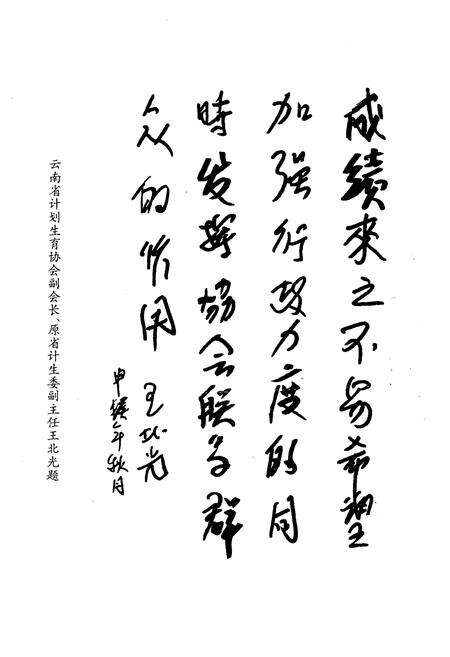 成績來之不易希望
加强行政力度的同
時发挥協会联系群
众的作用
王北光
申猴年秋月
云南省计划生育协会副会长、原省计生委副主任王北光题